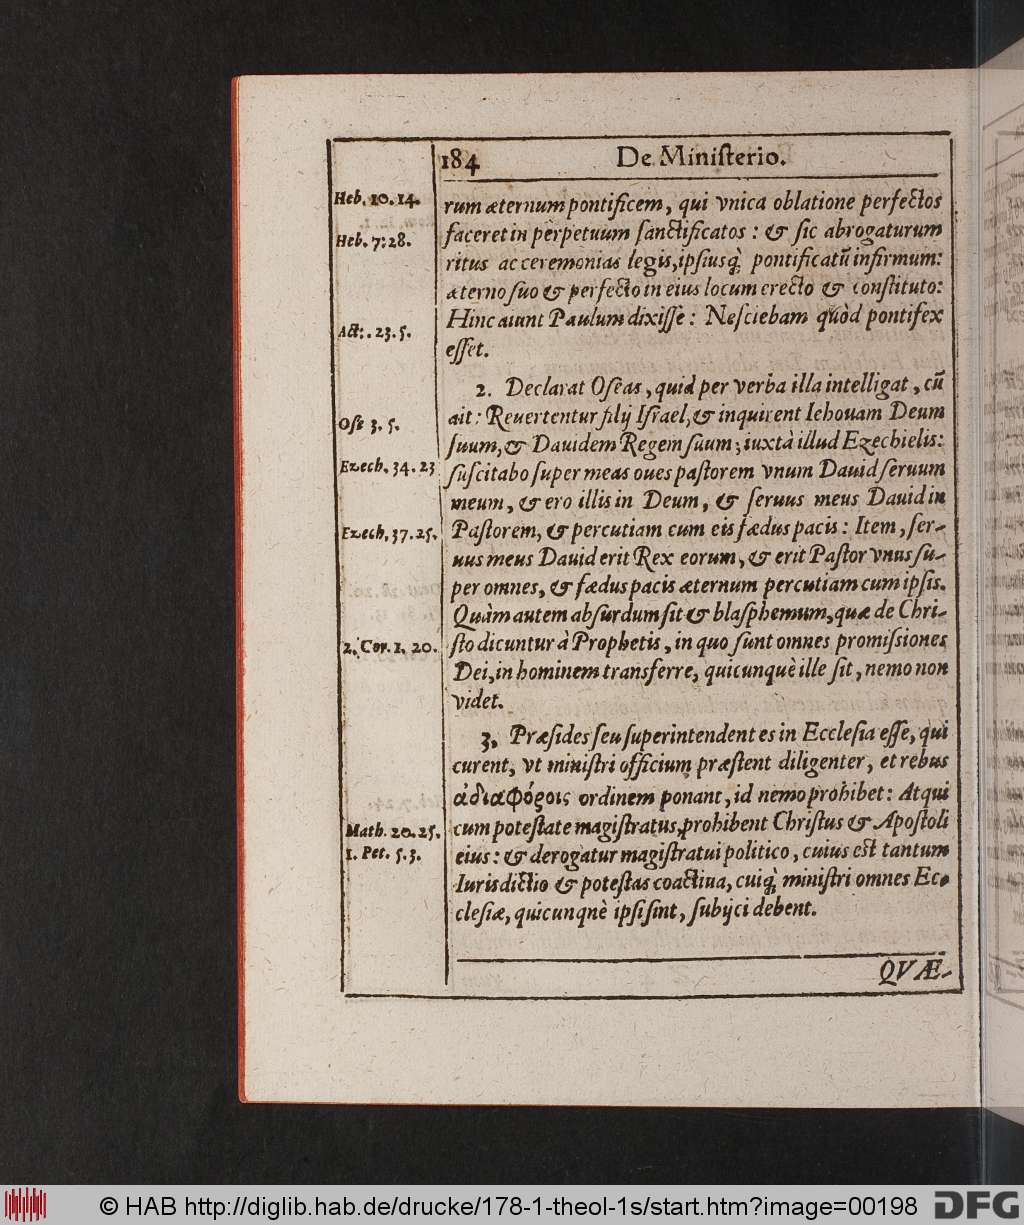 184 De Miniſterio.
Heb. 10. 14.
rum æternum pontificem, qui vnica oblatione perfectos
Heb. 7: 28.
faceret in perpetuum ſanctificatos : & ſic abrogaturum
ritus ac ceremonias legis, ipſiusq̃; pontificatũ infirmum:
æterno ſuo & perfecto in eius locum erecto & conſtituto:
Act. . 23. 5.
Hinc aiunt Paulum dixiſſe : Neſciebam quòd pontifex
eſſet.
2. Declarat Oſeas, quid per verba illa intelligat, cũ
Oſe 3. 5.
ait: Reuertentur filij Iſrael, & inquirent Iehouam Deum
ſuum, & Dauidem Regem ſuum; iuxtà illud Ezechielis:
Ezech. 34. 23
ſuſcitabo ſuper meas oues paſtorem vnum Dauid ſeruum
meum, & ero illis in Deum, & ſeruus meus Dauid in
Ezech. 37. 25.
Paſtorem, & percutiam cum eis fædus pacis : Item, ſer-
uus meus Dauid erit Rex eorum, & erit Paſtor vnus ſu-
per omnes, & fædus pacis æternum percutiam cum ipſis.
Quàm autem abſurdum ſit & blaſphemum, quæ de Chri-
2. Cor. 1. 20.
ſto dicuntur à Prophetis, in quo ſunt omnes promiſsiones
Dei, in hominem transferre, quicunquè ille ſit, nemo non
videt.
3. Præſides ſeu ſuperintendentes in Eccleſia eſſe, qui
curent, vt miniſtri officium præſtent diligenter, et rebus
ἀδιαφόροις ordinem ponant, id nemo prohibet: Atqui
Math. 20. 25.
cum poteſtate magiſtratus, prohibent Chriſtus & Apoſtoli
1. Pet. 5. 3.
eius : & derogatur magiſtratui politico, cuius eſt tantum
Iurisdictio & poteſtas coactiua, cuiq̃; miniſtri omnes Ec-
cleſiæ, quicunqnè ipſi ſint, ſubijci debent.
QVÆ-
© HAB http://diglib.hab.de/drucke/178-1-theol-1s/start.htm?image=00198
DFG